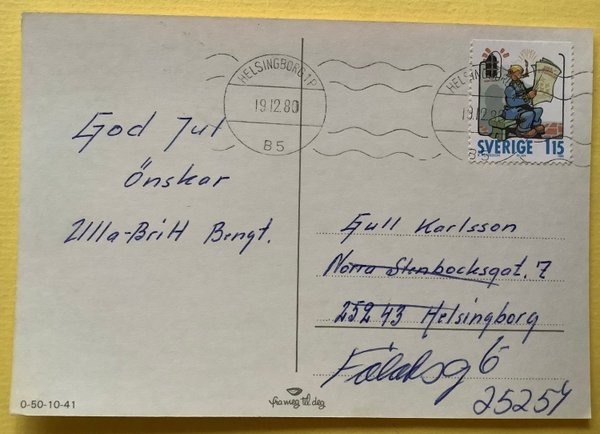 HELSINGBORG 1P
19.12.80
B5
HELSINGBORG
19.12.80
B5
SVERIGE 115
God Jul
Önskar
Ulla-Britt Bengt.
Gull Karlsson
Norra Stenbocksgat. 7
252 43 Helsingborg
6
25251
0-50-10-41
från mig till dig